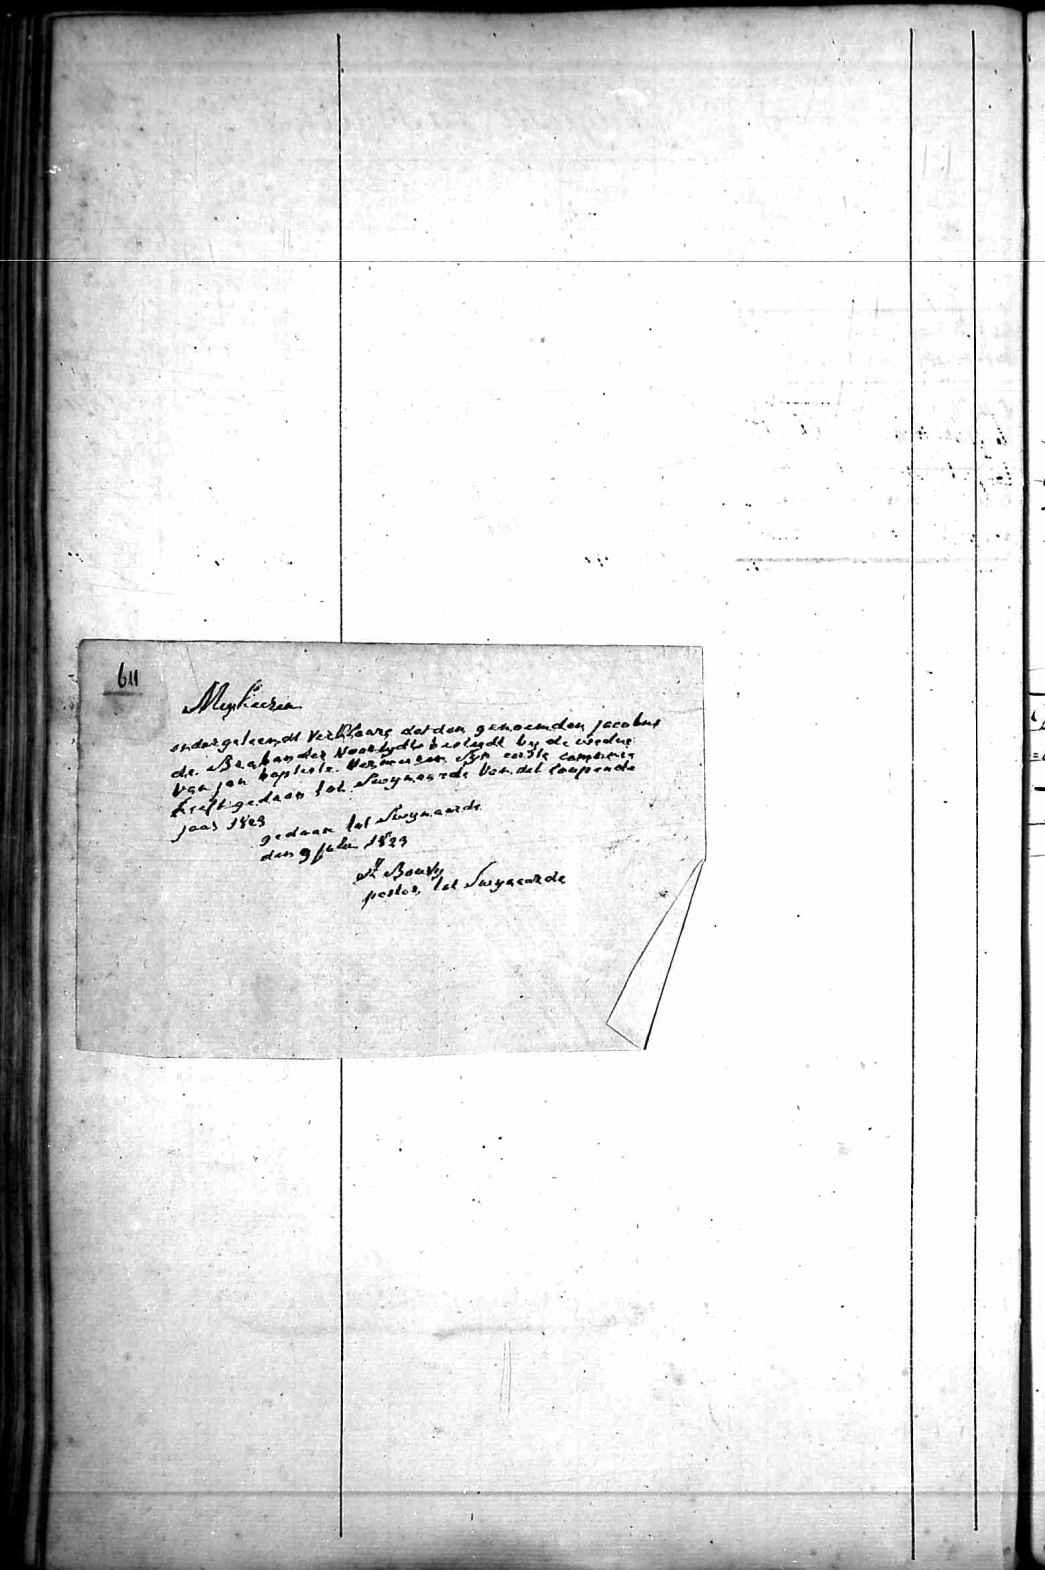 611
Myn heeren
ondergeteendt verklaare dat den genoemden jacobus
de Brabander Voortydts besteydt by de weduwe
Van jan baptiste Vermeuren syn eerste communie
heeft gedaen tot Swynaarde Van det loopende
jaar 1823
gedaan tot Swynaarde
den 9 julu 1823
pastor tot Swynaarde